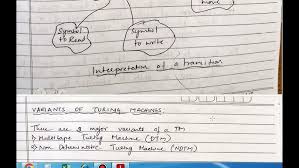 move
Symbol
to Read
Symbol
to write
Interpretation of a transition
VARIANTS OF TURING MACHINES
There are 2 major variants of a TM
1) Multitape Turing Machine (DTM)
2) Non Deterministic Turing Machine (NDTM)